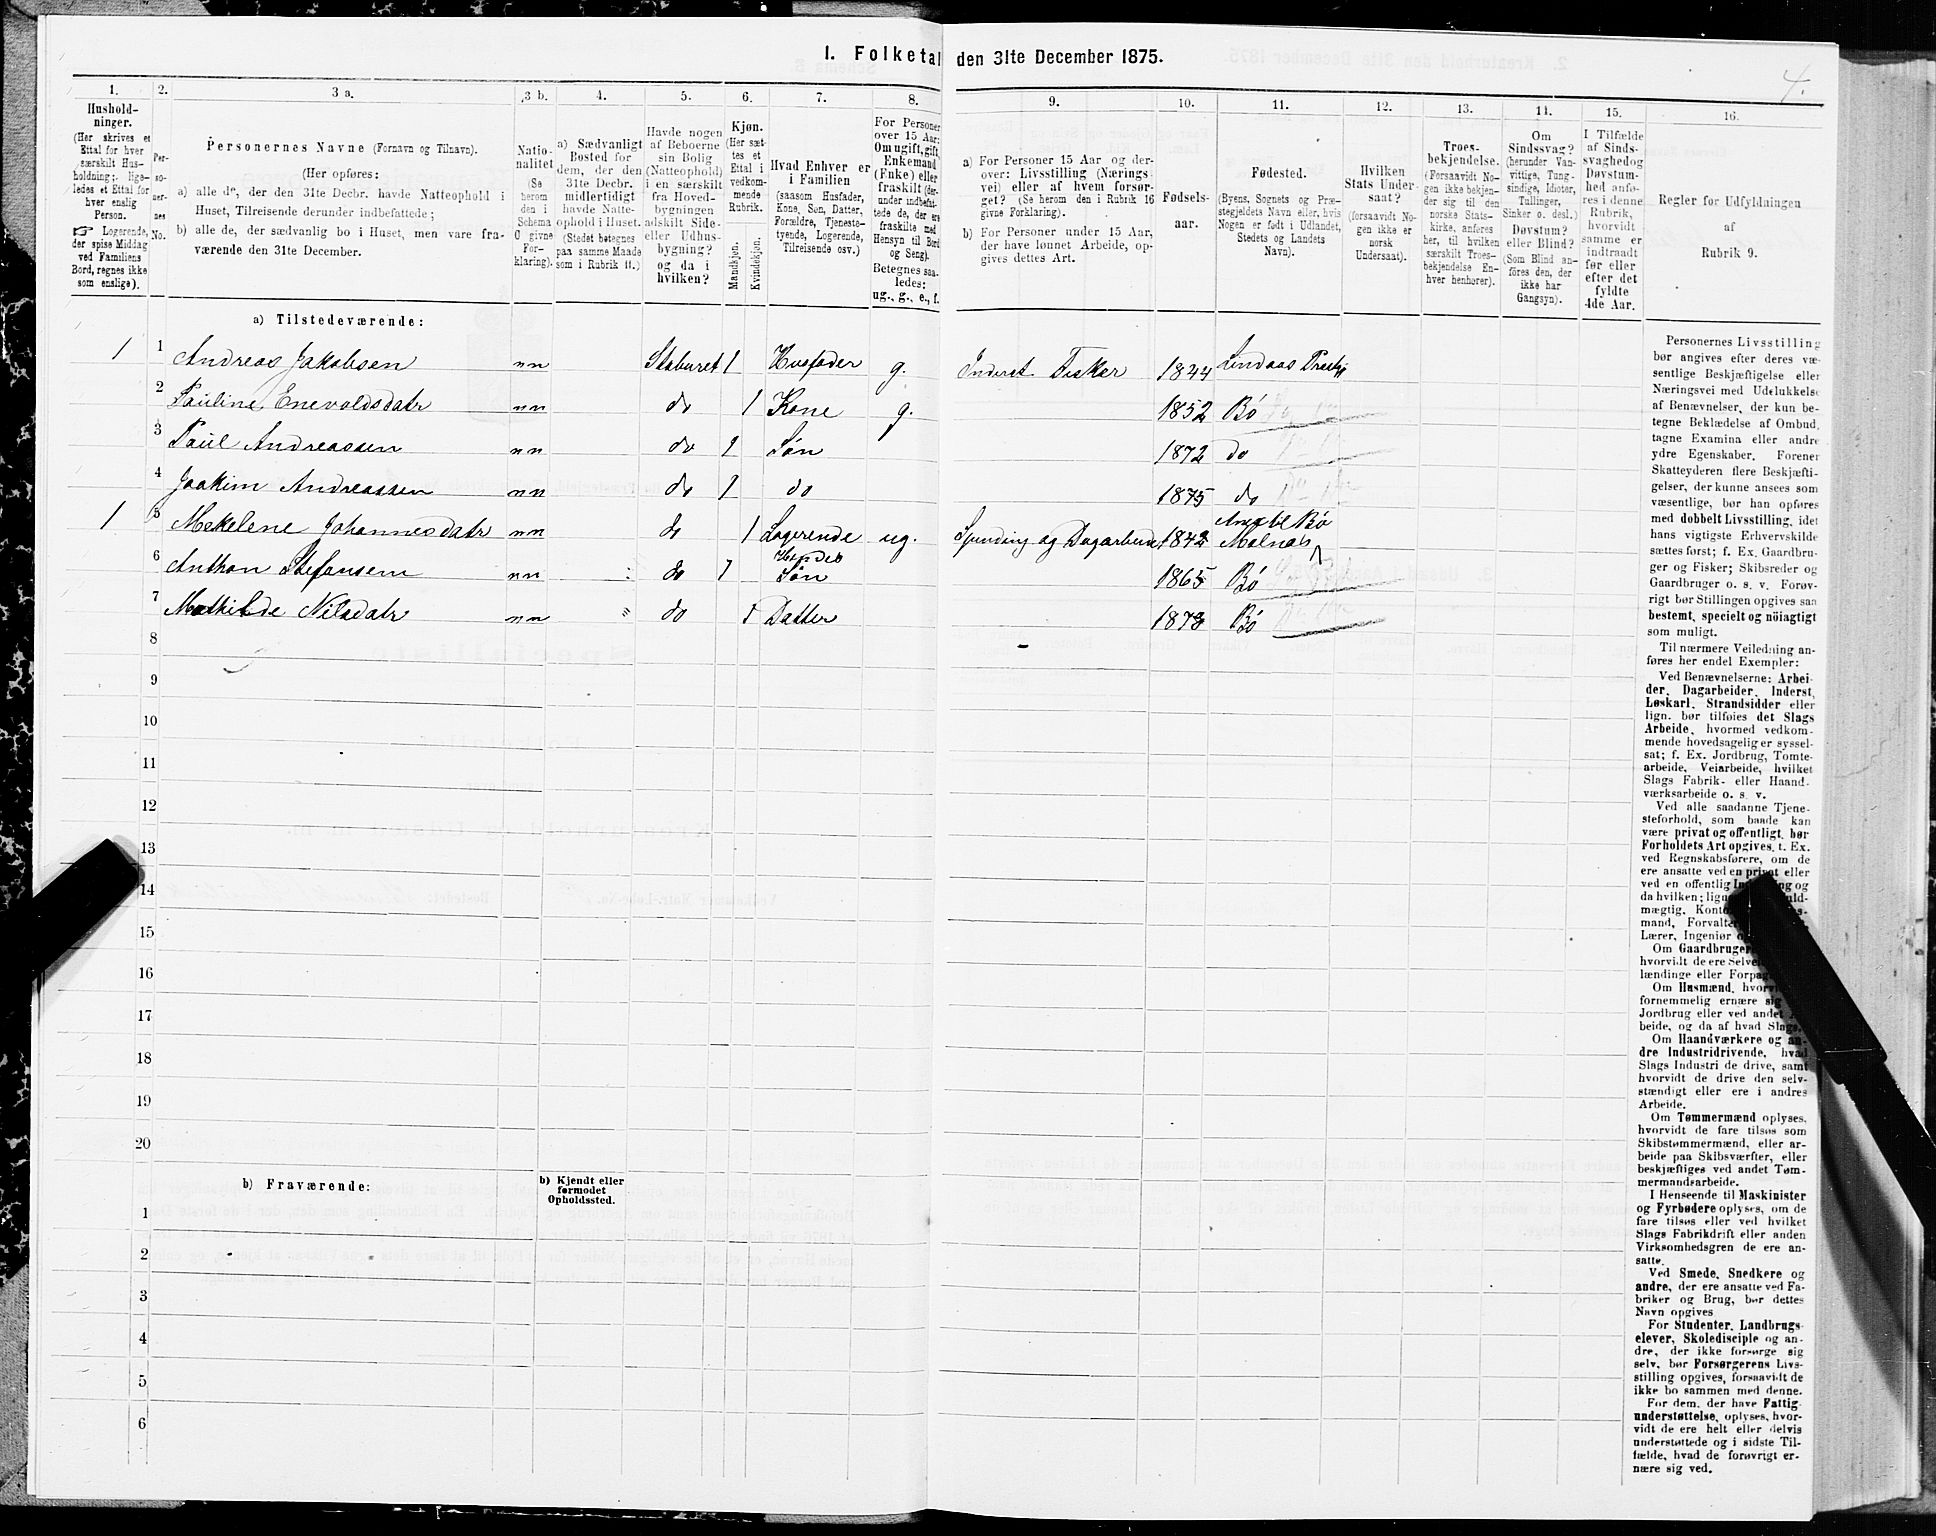 I. Folketal den 31te December 1875.
4.
1. 2. 3 a. 3 b. 4. 5. 6. 7. 8. 9. 10. 11. 12. 13. 14. 15. 16.
Hushold-
ninger.
(Her skrives et
Ettal for hver
særskilt Hus-
holdning; lige-
ledes et Ettal for
hver enslig
Person.
☞ Logerende,
der spise Middag
ved Familiens
Bord, regnes ikke
som enslige).
Per-
so-
ner-
nes
No.
Personernes Navne (Fornavn og Tilnavn).
(Her opføres:
a) alle de, der den 31te Decbr. havde Natteophold i
Huset, Tilreisende derunder indbefattede;
b) alle de, der sædvanlig bo i Huset, men vare fra-
værende den 31te December.
Natio-
nalitet
(Se
herom
den i
Schema
O givne
For-
klaring).
a) Sædvanligt
Bosted for
dem, der den
31te Decbr.
midlertidigt
havde Natte-
ophold i Huset.
(Stedet betegnes
paa samme Maade
som i Rubrik 11.)
Havde nogen
af Beboerne
sin Bolig
(Natteophold)
i en særskilt
fra Hoved-
bygningen
adskilt Side-
eller Udhus-
bygning?
og da i
hvilken?
Kjøn.
(Her sæt-
tes et
Ettal i
vedkom-
mende
Rubrik.
Mandkjøn.
Kvindekjøn.
Hvad Enhver er
i Familien
(saasom Husfader,
Kone, Søn, Datter,
Forældre, Tjeneste-
tyende, Logerende,
Tilreisende osv.)
For Personer
over 15 Aar:
Om ugift, gift,
Enkemand
(Enke) eller
fraskilt (der-
under indbefat-
tede de, der ere
fraskilte med
Hensyn til Bord
og Seng).
Betegnes saa-
ledes:
ug., g., e., f.
a) For Personer 15 Aar og der-
over: Livsstilling (Nærings-
vei) eller af hvem forsør-
get? (Se herom den i Rubrik 16
givne Forklaring).
b) For Personer under 15 Aar,
der have lønnet Arbeide, op-
gives dettes Art.
Fødsels-
aar.
Fødested.
(Byens, Sognets og Præ-
stegjeldets Navn eller, hvis
Nogen er født i Udlandet,
Stedets og Landets
Navn).
Hvilken
Stats Under-
saat?
(forsaavidt No-
gen ikke er
norsk
Undersaat).
Troes-
bekjendelse.
(Forsaavidt No-
gen ikke bekjen-
der sig til den
norske Stats-
kirke, anføres
her, til hvilken
særskilt Troes-
bekjendelse En-
hver henhører).
Om
Sindssvag?
(herunder Van-
vittige, Tung-
sindige, Idioter,
Tullinger,
Sinker o. desl.)
Døvstum?
eller Blind?
(Som Blind an-
føres den, der
ikke har
Gangsyn).
I Tilfælde
af Sinds-
svaghed og
Døvstum-
hed anfø-
res i denne
Rubrik,
hvorvidt
samme er
indtraadt
før eller
efter det
fyldte
4de Aar.
Regler for Udfyldningen
af
Rubrik 9.
a) Tilstedeværende:
1 1 Andreas Jakobsen nn Staburet 1 Husfader g. Inderst Fisker 1844 Lindaas Prestgj
2 Pauline Enevoldsdatr nn do 1 Kone g. 1852 Bø
3 Paul Andreassen nn do 1 Søn 1872 do
4 Joakim Andreassen nn do 1 do 1875 do
1 5 Mekelene Johannesdatr nn do 1 Logerende ug. Spinding og Dagarbeide 1842 Anex til Bø Malnæs
6 Anthon Stefansem nn do 1 Hendes Søn 1865 Bø
7 Mathilde Nilsdatr nn " do 1 Datter 1873 Bø
8
9
10
11
12
13
14
15
16
17
18
19
20
b) Fraværende:
b) Kjendt eller
formodet
Opholdssted.
1
2
3
4
5
6
Personernes Livsstilling
bør angives efter deres væ-
sentlige Beskjæftigelse eller
Næringsvei med Udelukkelse
af Benævnelser, der kun be-
tegne Beklædelse af Ombud,
tagne Examina eller andre
ydre Egenskaber. Forener
Skatteyderen flere Beskjæfti-
gelser, der kunne ansees som
væsentlige, bør han opføres
med dobbelt Livsstilling, idet
hans vigtigste Erhvervskilde
sættes først; f. Ex. Gaardbru-
ger og Fisker; Skibsreder og
Gaardbruger o. s. v. Forøv-
rigt bør Stillingen opgives saa
bestemt, specielt og nöiagtigt
som muligt.
Til nærmere Veiledning an-
føres her endel Exempler:
Ved Benævnelserne: Arbei-
der, Dagarbeider, Inderst,
Løskarl, Strandsidder eller
lign. bør tilføies det Slags
Arbeide, hvormed vedkom-
mende hovedsagelig er syssel-
sat; f. Ex. Jordbrug, Tomte-
arbeide, Veiarbeide, hvilket
Slags Fabrik- eller Haand-
værksarbeide o. s. v.
Ved alle saadanne Tjene-
steforhold, som baade kan
være privat og offentligt, bør
Forholdets Art opgives, t. Ex.
ved Regnskabsførere, om de
ere ansatte ved en privat eller
ved en offentlig og
da hvilken;
mægtig,
mand,
Lærer, Ingeniør
Om Gaardbruger
hvorvidt de ere
lændinge eller
Om Husmænd,
fornemmelig ernære sig
Jordbrug eller ved andet
beide, og da af hvad Slags.
Om Haandværkere og an-
dre Industridrivende, hvad
Slags Industri de drive, samt
hvorvidt de drive den selv-
stændigt eller ere i andres
Arbeide.
Om Tømmermænd oplyses,
hvorvidt de fare tilsøs som
Skibstømmermænd, eller ar-
beide paa Skibsværfter, eller
beskjæftiges ved andet Tøm-
mermandsarbeide.
I Henseende til Maskinister
og Fyrbødere oplyses, om de
fare tilsøs eller ved hvilket
Slags Fabrikdrift eller anden
Virksomhedsgren de ere an-
satte.
Ved Smede, Snedkere og
andre, der ere ansatte ved Fa-
briker og Brug, bør dettes
Navn opgives
For Studenter, Landbrugs-
elever, Skoledisciple og an-
dre, der ikke forsørge sig
selv, bør Forsørgerens Livs-
stilling opgives, forsaavidt de
ikke bo sammen med denne.
For dem, der have Fattig-
understøttelse, oplyses, hvor-
vidt de ere helt eller delvis
understøttede og i sidste Til-
fælde, hvad de forøvrigt er-
nære sig ved.